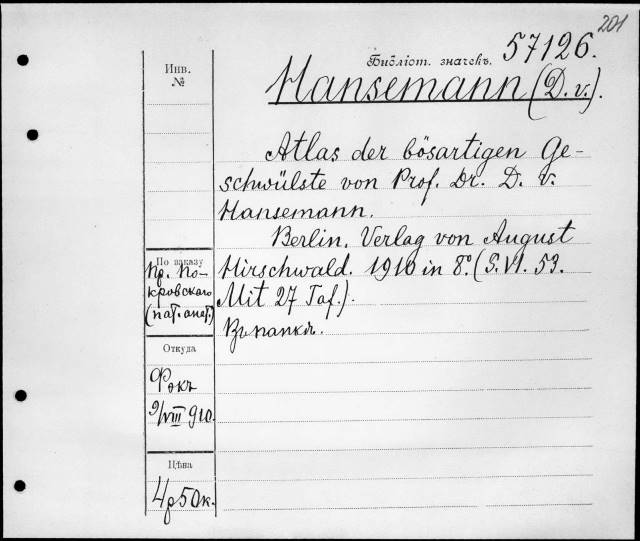 201
Бібліот. значекъ. 57126.
Инв.
№
Hansemann (D. v.).
Atlas der bösartigen Ge-
schwülste von Prof. Dr. D. v.
Hansemann.
Berlin. Verlag von August
Hirschwald. 1910 in 8.° (S. VI. 53.
Mit 27 Taf.).
Въ папкѣ.
По заказу
пр. По-
кровскаго
(пат. анат.)
Откуда
Фокъ
9/VIII 910.
Цѣна
4р50к.